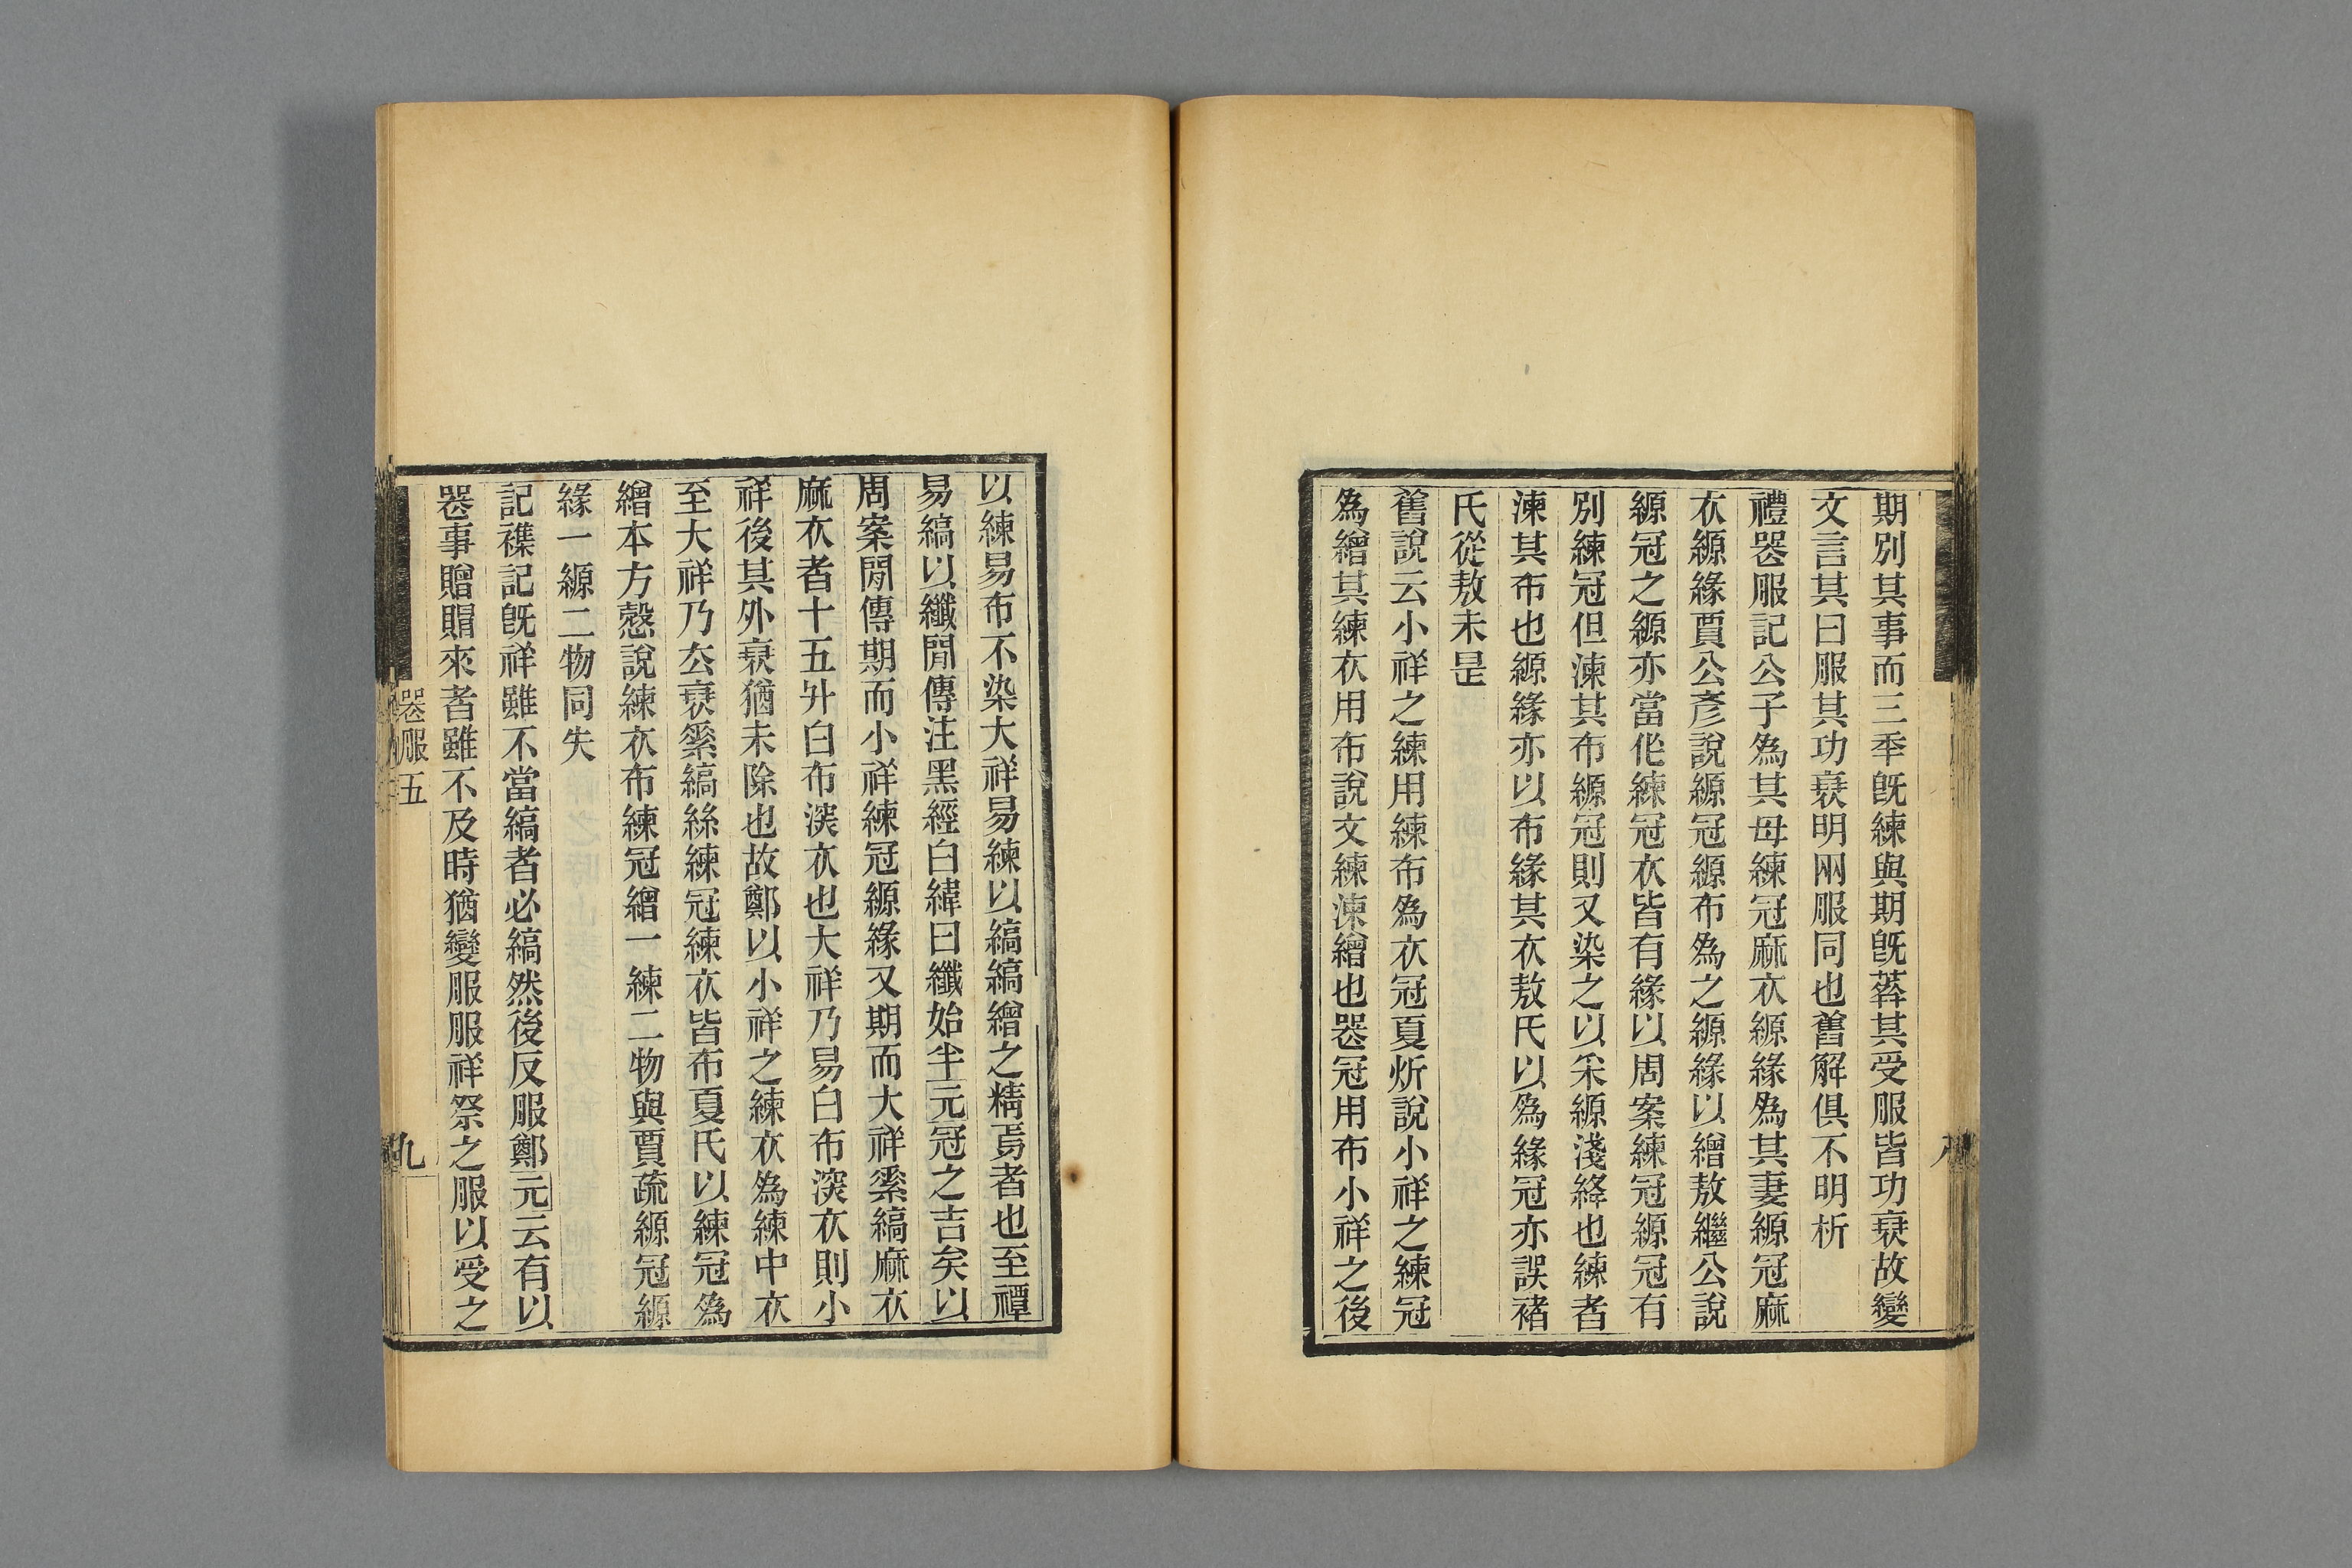 期別其事而三秊旣練與期旣葬其受服皆功衰故變
文言其曰服其功衰明兩服同也舊解俱不明析
禮喪服記公子爲其母練冠麻衣縓緣爲其妻縓冠麻
衣縓緣賈公彥說縓冠縓布爲之縓緣以繒敖繼公說
縓冠之縓亦當作練冠衣皆有緣以周案練冠縓冠有
別練冠但湅其布縓冠則又染之以采縓淺絳也練者
湅其布也縓緣亦以布緣其衣敖氏以爲緣冠亦誤褚
氏從敖未是
舊說云小祥之練用練布爲衣冠夏炘說小祥之練冠
爲繒其練衣用布說文練湅繒也喪冠用布小祥之後
八
以練易布不染大祥易練以縞縞繒之精焉者也至禫
易縞以纖閒傳注黑經白緯曰纖始半元冠之吉矣以
周案閒傳期而小祥練冠縓緣又期而大祥素縞麻衣
麻衣者十五升白布深衣也大祥乃易白布深衣則小
祥後其外衰猶未除也故鄭以小祥之練衣爲練中衣
至大祥乃去衰素縞絲練冠練衣皆布夏氏以練冠爲
繒本方愨說練衣布練冠繒一練二物與賈疏縓冠縓
緣一縓二物同失
記襍記旣祥雖不當縞者必縞然後反服鄭元云有以
喪事贈賵來者雖不及時猶變服服祥祭之服以受之
喪服五
九